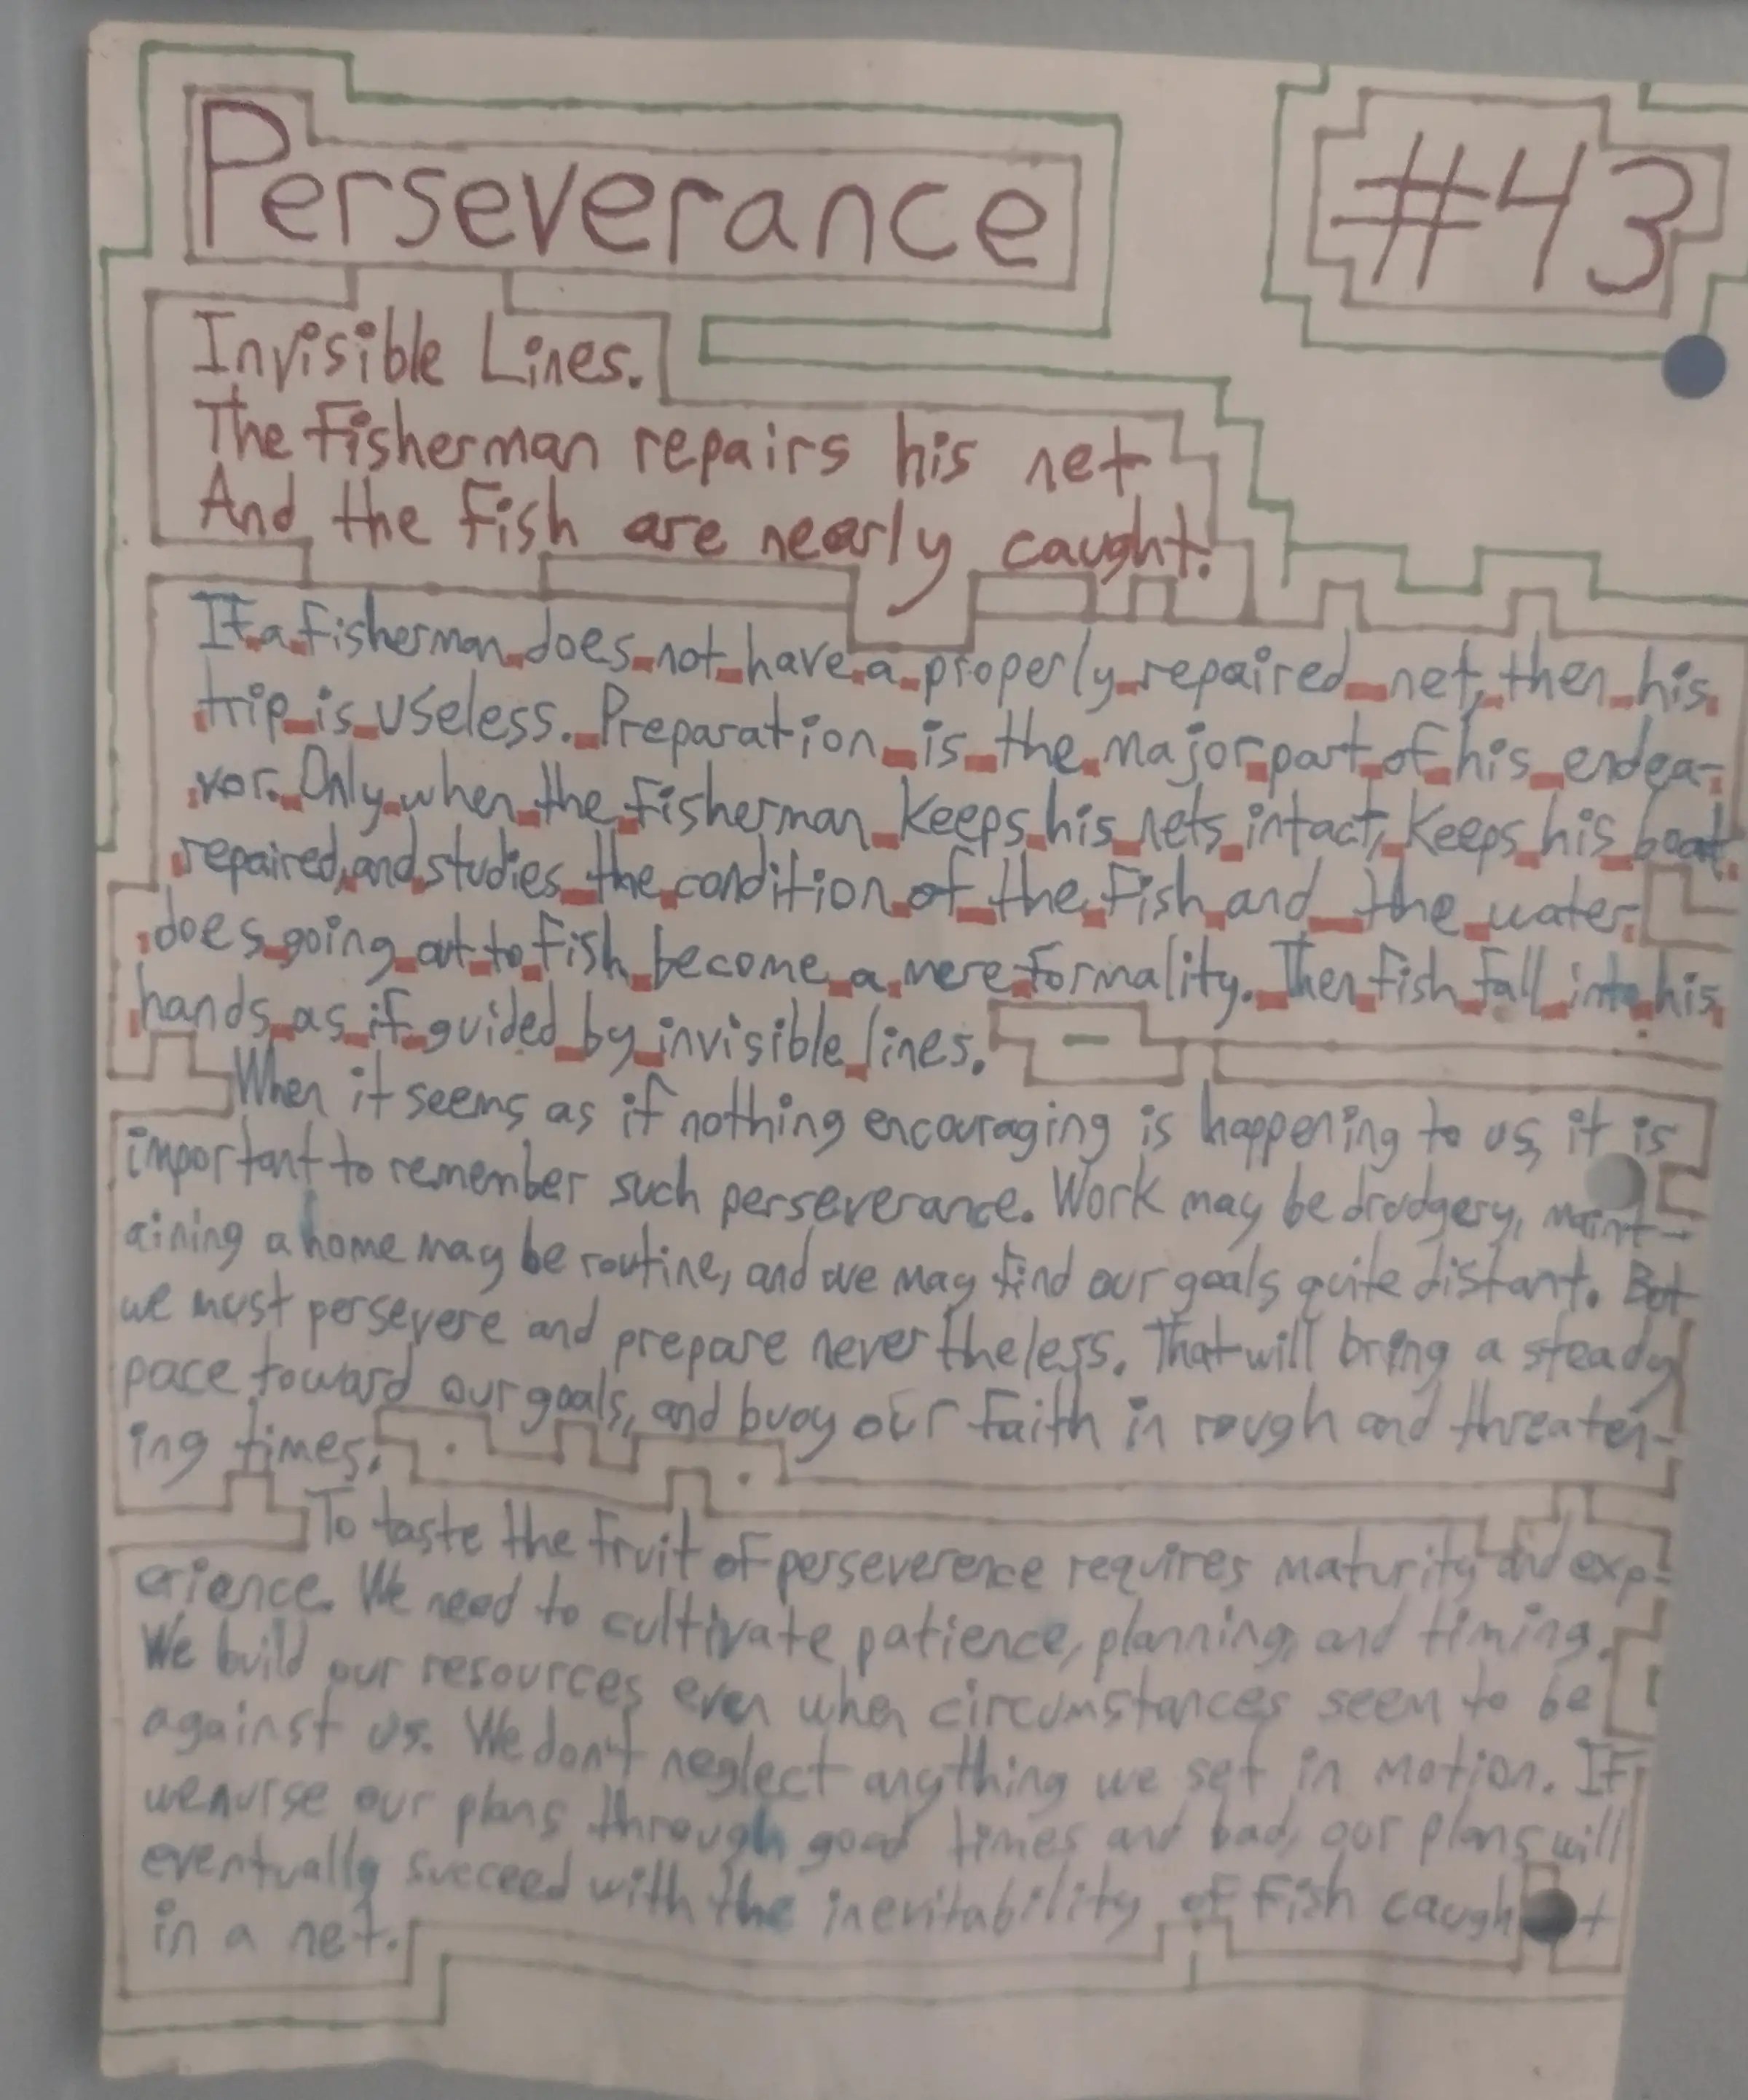 Perseverance
#43
Invisible Lines.
The Fisherman repairs his net
And the Fish are nearly caught.
If a fisherman does not have a properly repaired net, then his
trip is useless. Preparation is the major part of his endea-
vor. Only when the fisherman keeps his nets intact, keeps his boat
repaired, and studies the condition of the fish and the water,
does going out to fish become a mere formality. Then fish fall into his
hands as if guided by invisible lines.
When it seems as if nothing encouraging is happening to us, it is
important to remember such perseverance. Work may be drudgery, maint-
aining a home may be routine, and we may find our goals quite distant. But
we must persevere and prepare never the less. That will bring a steady
pace toward our goals, and buoy our faith in rough and threaten-
ing times.
To taste the fruit of perseverence requires maturity and exp-
erience. We need to cultivate patience, planning, and timing.
We build our resources even when circumstances seem to be
against us. We don't neglect anything we set in motion. If
we nurse our plans through good times and bad, our plans will
eventually succeed with the inevitability of fish caught
in a net.